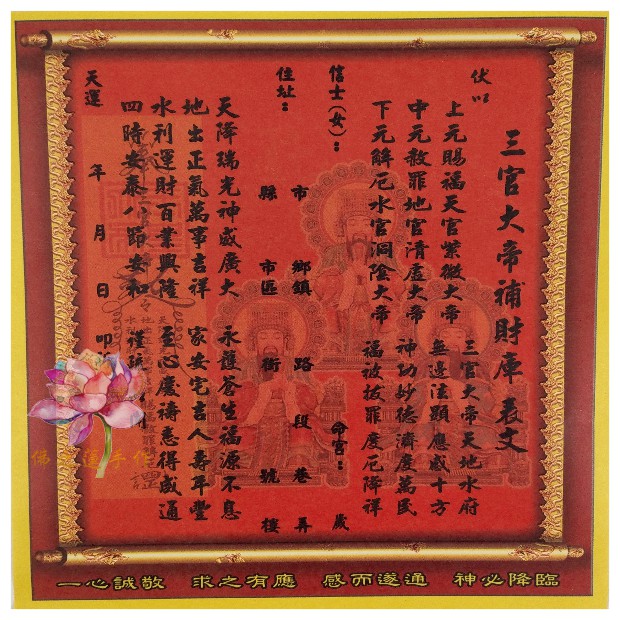 三官大帝補財庫表文
伏以
上元賜福天官紫微大帝 三官大帝天地水府
中元赦罪地官清虛大帝 無邊法顯應感十方
下元解厄水官洞陰大帝 神功妙德濟度萬民
福被拔罪度厄降祥
信士(女): 命宮: 歲
住址: 縣市 鄉鎮市區 路街 段 巷號 弄樓
天降瑞光神威廣大 永護蒼生福源不息
地出正氣萬事吉祥 家安宅吉人壽年豐
水利運財百業興隆 至心慶禱悉得感通
四時安泰八節安和
天運 年 月 日 叩
一心誠敬 求之有應 感而遂通 神必降臨